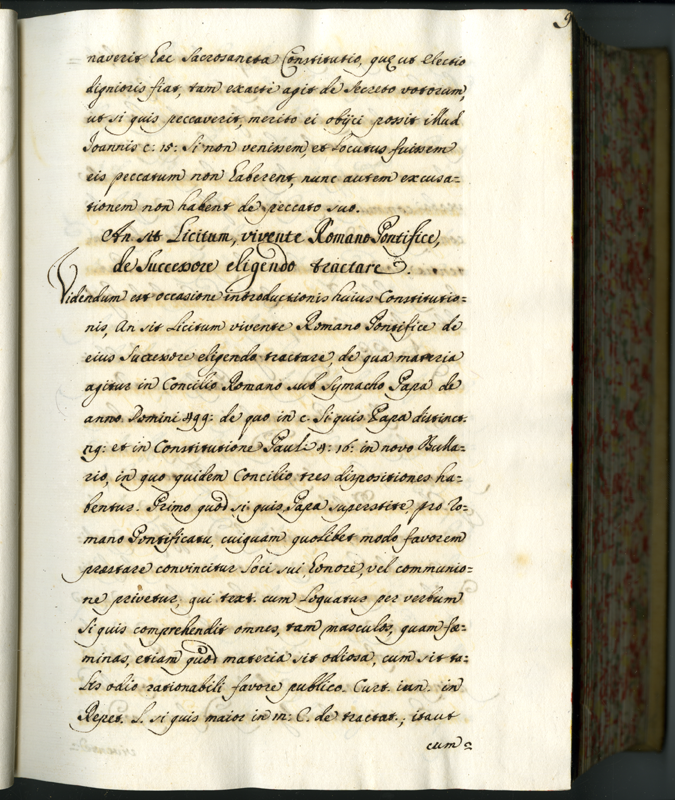 9
naverit hac Sacrosancta Constitutio, quę ut electio
dignioris fiat, tam exacti agit de Secreto votorum,
ut si quis peccaverit, merito ei obijci possit illud
Joannis c: 15: Si non venissem, et Locutus fuissem
eis peccatum non haberent, nunc autem excusa=
tionem non habent de peccato suo.
An sit Licitum, vivente Romano Pontifice,
de Successore eligendo tractare.
Videndum est occasione introductionis huius Constitutio=
nis, An sit Licitum vivente Romano Pontifice de
eius Successore eligendo tractare, de qua materia
agitur in Concilio Romano sub Symacho Papa de
anno Domini 499: de quo in c. Si quis Papa distinct.
79: et in Constitutione Pauli 4: 16: in novo Bulla=
rio, in quo quidem Concilio tres dispositiones ha=
bentur. Primo quod si quis, Papa superstite, pro Ro=
mano Pontificatu, cuiquam quolibet modo favorem
præstare convincitur Loci sui, honore, vel communio=
ne privetur, qui text. cum Loquatur per verbum
Si quis comprehendit omnes, tam masculos, quam fœ=
minas, etiam quod materia sit odiosa, cum sit ta=
lis odio rationabili favore publico. Curt. iun. in
Repet. L. si quis maior in m: C. de tractat., itaut
cum=